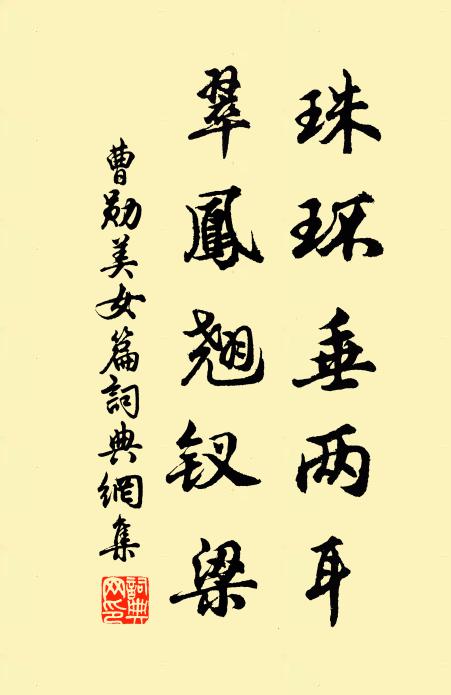 珠环垂两耳
翠鳳翘钗梁
曹勋美女篇詞典網集
詞典网印